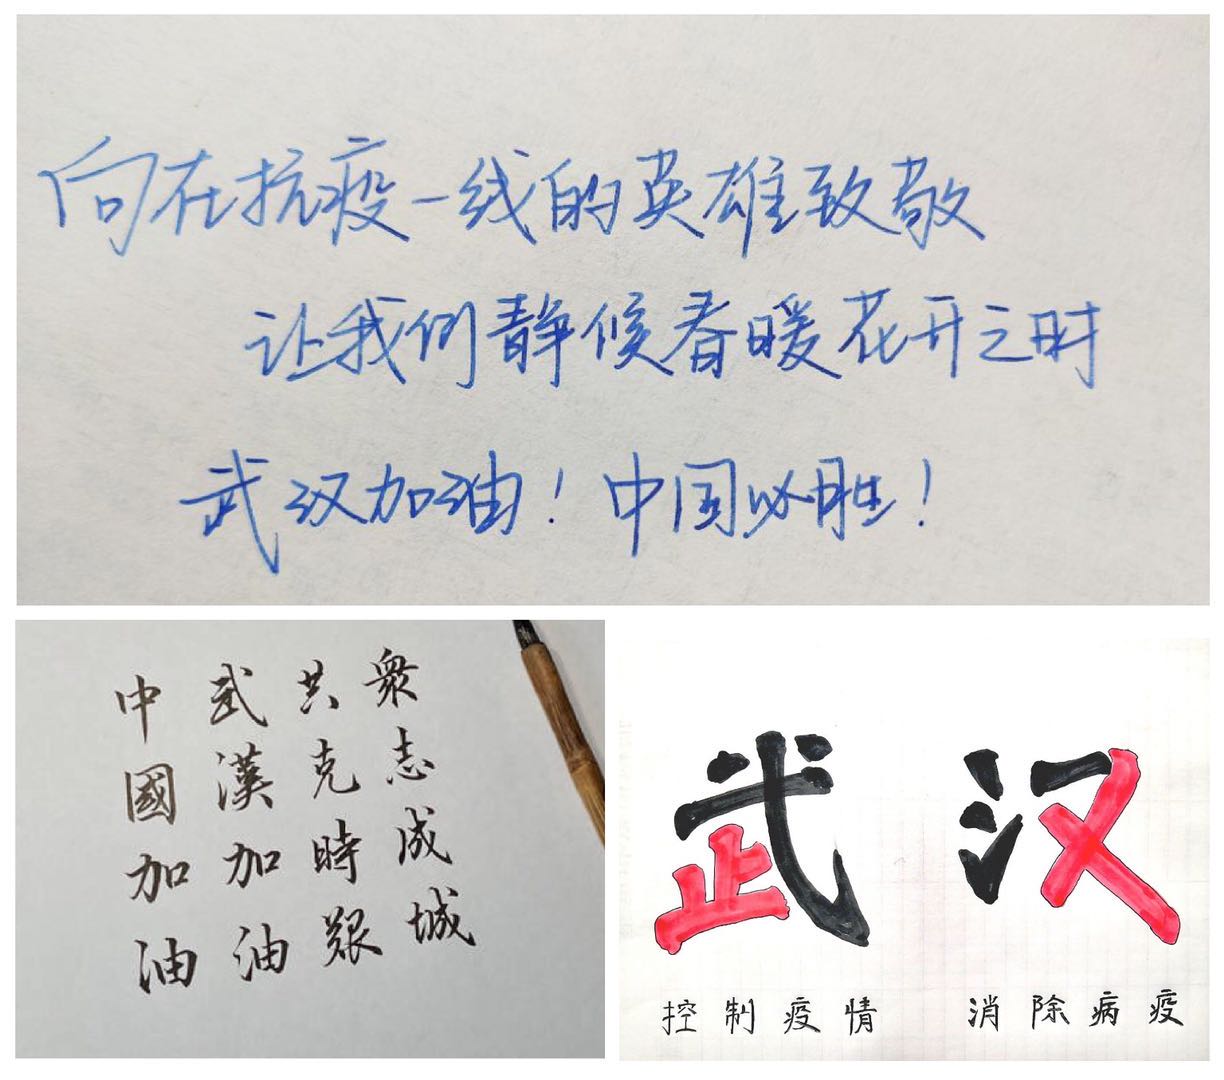 向在抗疫一线的英雄致敬
让我们静候春暖花开之时
武汉加油！中国必胜！
衆志成城
共克時艱
武漢加油
中國加油
武汉
控制疫情 消除病疫